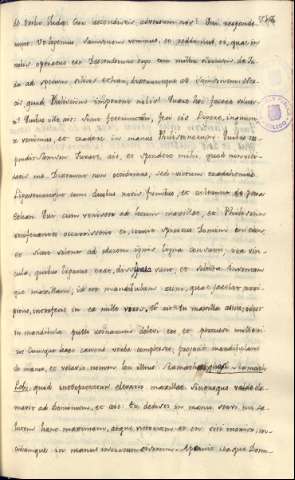 de tribu Juda: Cur ascendistis adversum nos? Qui respond
erunt: Ut ligemus Samsonem venimus, et reddamus ei, quæ in
nobis operatus est. Descenderunt ergo tria millia virorum de Ju
da ad specum silicis Etham, dixeruntque ad Samsonem: Nes
cis quod Philisthiim imperent nobis? Quare hoc facere voluis
ti? Quibus ille ait: Sicut fecerunt mihi, sic feci eis. Ligare, inquiunt,
te venimus, et tradere in manus Philisthinorum. Quibus res
pondit Samson: Jurate, ait, et spondete mihi, quod non occi
datis me. Dixerunt: Non occidemus, sed vinctum trademus.
Ligaveruntque eum duobus novis funibus, et tulerunt de Petra
Etham. Qui cum venisset ad locum maxillæ, et Philisthiim
vociferantes occurrissent ei, irruit spiritus Domini in eum:
et sicut solent ad odorem ignis ligna consumi, ita vin
cula, quibus ligatus erat, dissipata sunt, et soluta. Inventam
que maxillam, id est mandibulam asini, quæ jacebat arri
piens, interfecit in ea mille viros, et ait: In maxilla asini,
in mandibula pulli asinarum delevi eos, et percussi mille vi
ros. Cumque hæc canens verba complesset, projecit mandibulam
de manu, et vocavit nomen loci illius Ramathlechi,
quod interpretatur elevatio maxillæ. Sitiensque valde cla
mavit ad Dominum, et ait: Tu dedisti in manu servi tui sa
lutem hanc maximam, atque victoriam: et en siti morior, in
cidamque in manus incircumcisorum. Aperuit itaque Dom